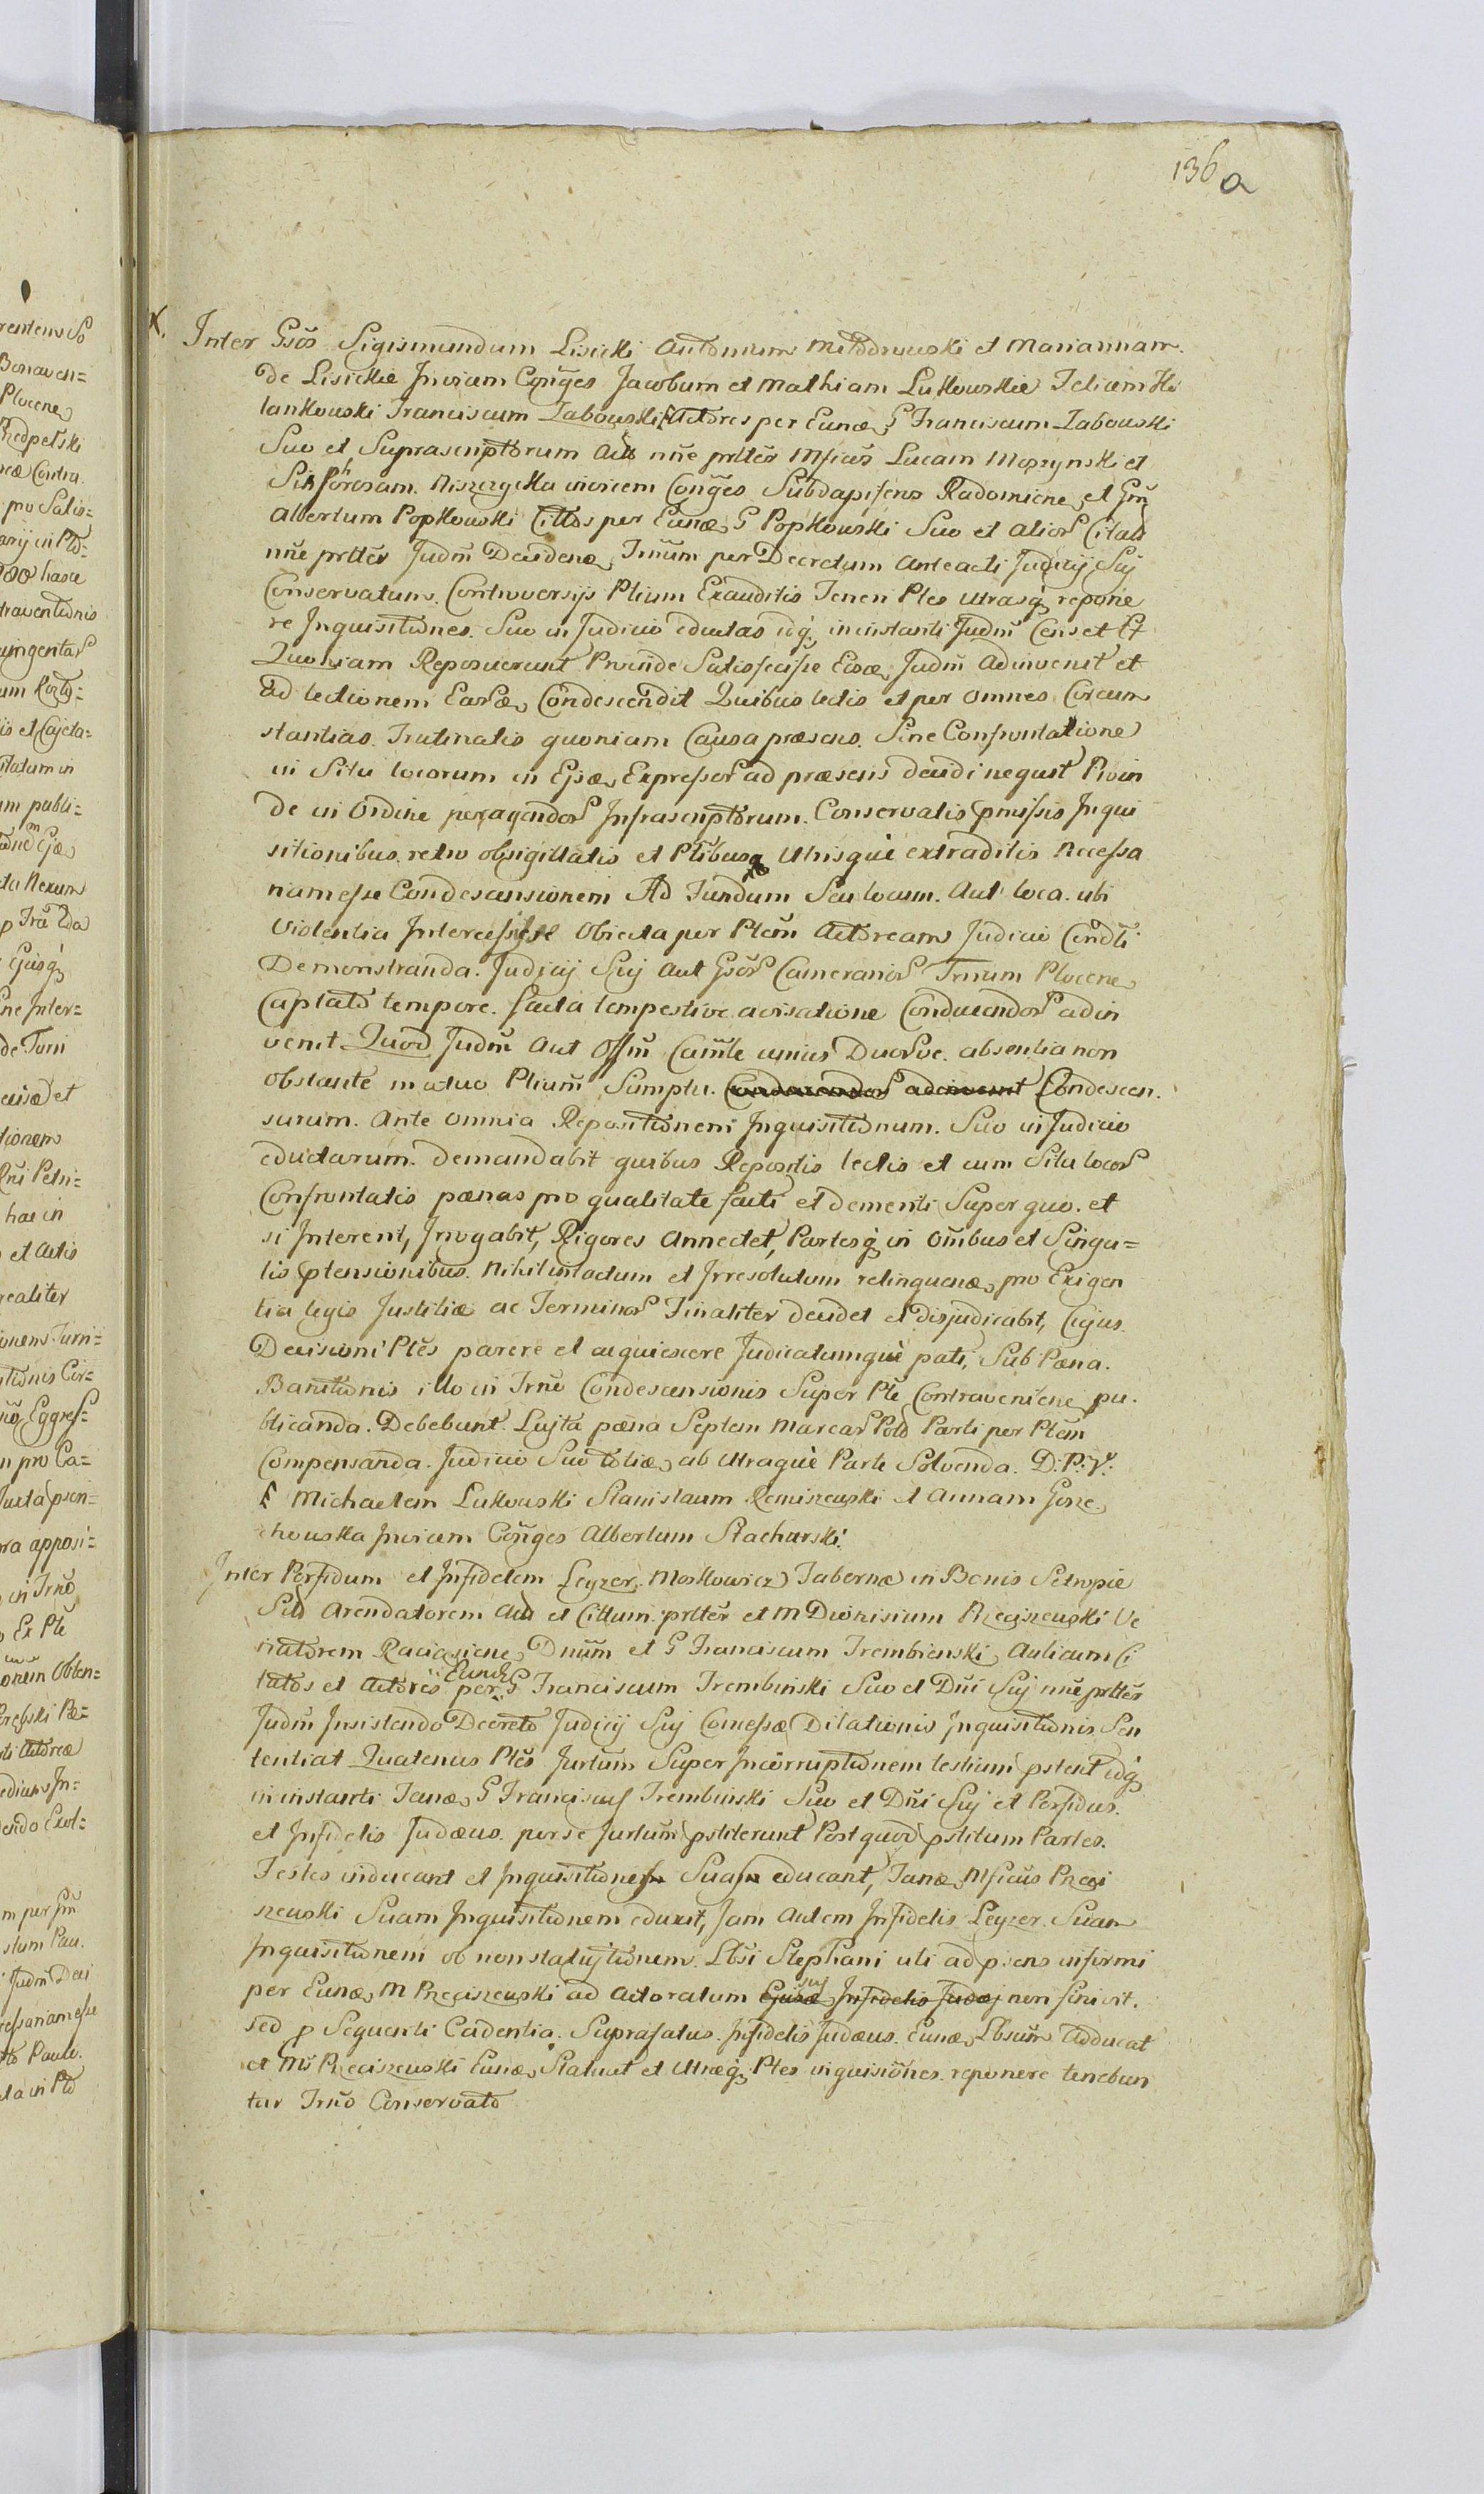 136 a
X. Inter Gsōs Sigismundum Lisicki Antonium Młodowski et Mariannam
de Lisickie Invicem Cōnges Jacobum et Mathiam Lukowskie Felicem Ko
lankowski Franciscum Zabowski Actores per Eunđ G Franciscum Zabowski
Suo et Suprascriptorum Act nñe prltēr Mficūs Lucam Moszynski et
Sinforosam Niszczycka invicem Cōnges Subdapiferos Radomiens et Gñ
Albertum Popkowski Cittos per Eunđ G Popkowski Suo et alior Citat
nñe prltēr Judm̄ Decidend Trñum per Decretum Anteacti Judicij Sui
Conservatum Controversijs Ptium Exauditis Teneri Ptes Utrasq repone
re Inquisitiones Suo in Judicio eductas idq in instanti Judm̄ Censet Et
Quoniam Reposuerunt Proinde Satisfecisse Eisđ Judm̄ Adinvenit et
ad lectionem Earđ Condescendit Quibus lectis et per omnes Circum
stantias Trutinatis quoniam Causa præsens Sine Confrontatione
in Situ locorum in Ejsđ Expressor ad præsens decidi nequit Proin
de in Ordine peragendor Infrascriptorum Conservatis pmissis Inqui
sitionibus retro obsigillatis et Ptibus Utrisque extraditis Necessa
riam esse Condescensionem Ad Fundum Seu locum Aut loca ubi
Violentia Intercessisse Objecta per Ptem Actoream Judicio Condti
Demonstranda Judicij Sui Aut Gsor Camerarior Trñum Plocens
Captato tempore facta tempestive avisatione Conducendor adin
venit Quod Judm̄ Aut Offm̄ Camle unius Duorve absentia non
obstante mutuo Ptium Sumptu Conducendor adinvenit Condescen
surum Ante omnia Repositionem Inquisitionum Suo in Judicio
eductarum demandabit quibus Repositis lectis et cum Situ locor
Confrontatis pænas pro qualitate facti et demeriti Super quo et
si Intererit, Irrogabit, Rigores Annectet, Partesq in omibus et Singu=
lis ptensionibus Nihil intactum et Irresolutum relinquens pro Exigen
tia legis Justitiæ ac Terminor Finaliter decidet et disjudicabit, Cujus
Decisioni Ptes parere et acquiescere Judicatumque pati, Sub Pæna
Banitionis illo in Trno Condescensionis Super Pte Contraveniens pu
blicanda Debebunt Lujta pæna Septem Marcar Pold Parti per Ptem
Compensanda Judicio Suo toties ab Utraque Parte Solvenda. D: P: V:
Michaelem Lukowski Stanislaum Remiszewski et Annam Gorze
chowska Invicem Cōnges Albertum Stacharski
Inter Perfidum et Infidelem Leyzer Moskowicz Tabernæ in Bonis Setropie
Sito Arendatorem Act et Cittum prltēr et M Dionisium Przeciszewski Ve
natorem Raciąziens Dnum et G Franciscum Trembinski Aulicum Ci
tatos et Actores per Eund G Franciscum Trembinski Suo et Dni Sui nñe prltēr
Judm̄ Insistendo Decreto Judicij Sui Comessæ Dilationis Inquisitionis Sen
tentiat Quatenus Ptes Jurtum Super Incorruptionem testium pstent idq
in instanti Tand G Franciscus Trembinski Suo et Dni Sui et Perfidus
et Infidelis Judæus per se Jurtum pstiterunt Post quod pstitum Partes
Testes inducant et Inquisitiones Suas educant, Tand Mficus Przeci
szewski Suam Inquisitionem eduxit, Jam Autem Infidelis Leyzer Suam
Inquisitionem ob nonstatuitionem Lbsi Stephani uti ad psens infirmi
per Eund M Przeciszewski ad Actoratum Ejusđ Infidelis Judæj non finivit
sed p Sequenti Cadentia Suprafatus Infidelis Judæus Eund Lbsum Adducat
et M Przeciszewski Eund Statuet et Utræq Ptes inquisiones reponere tenebun
tur Trno Conservato